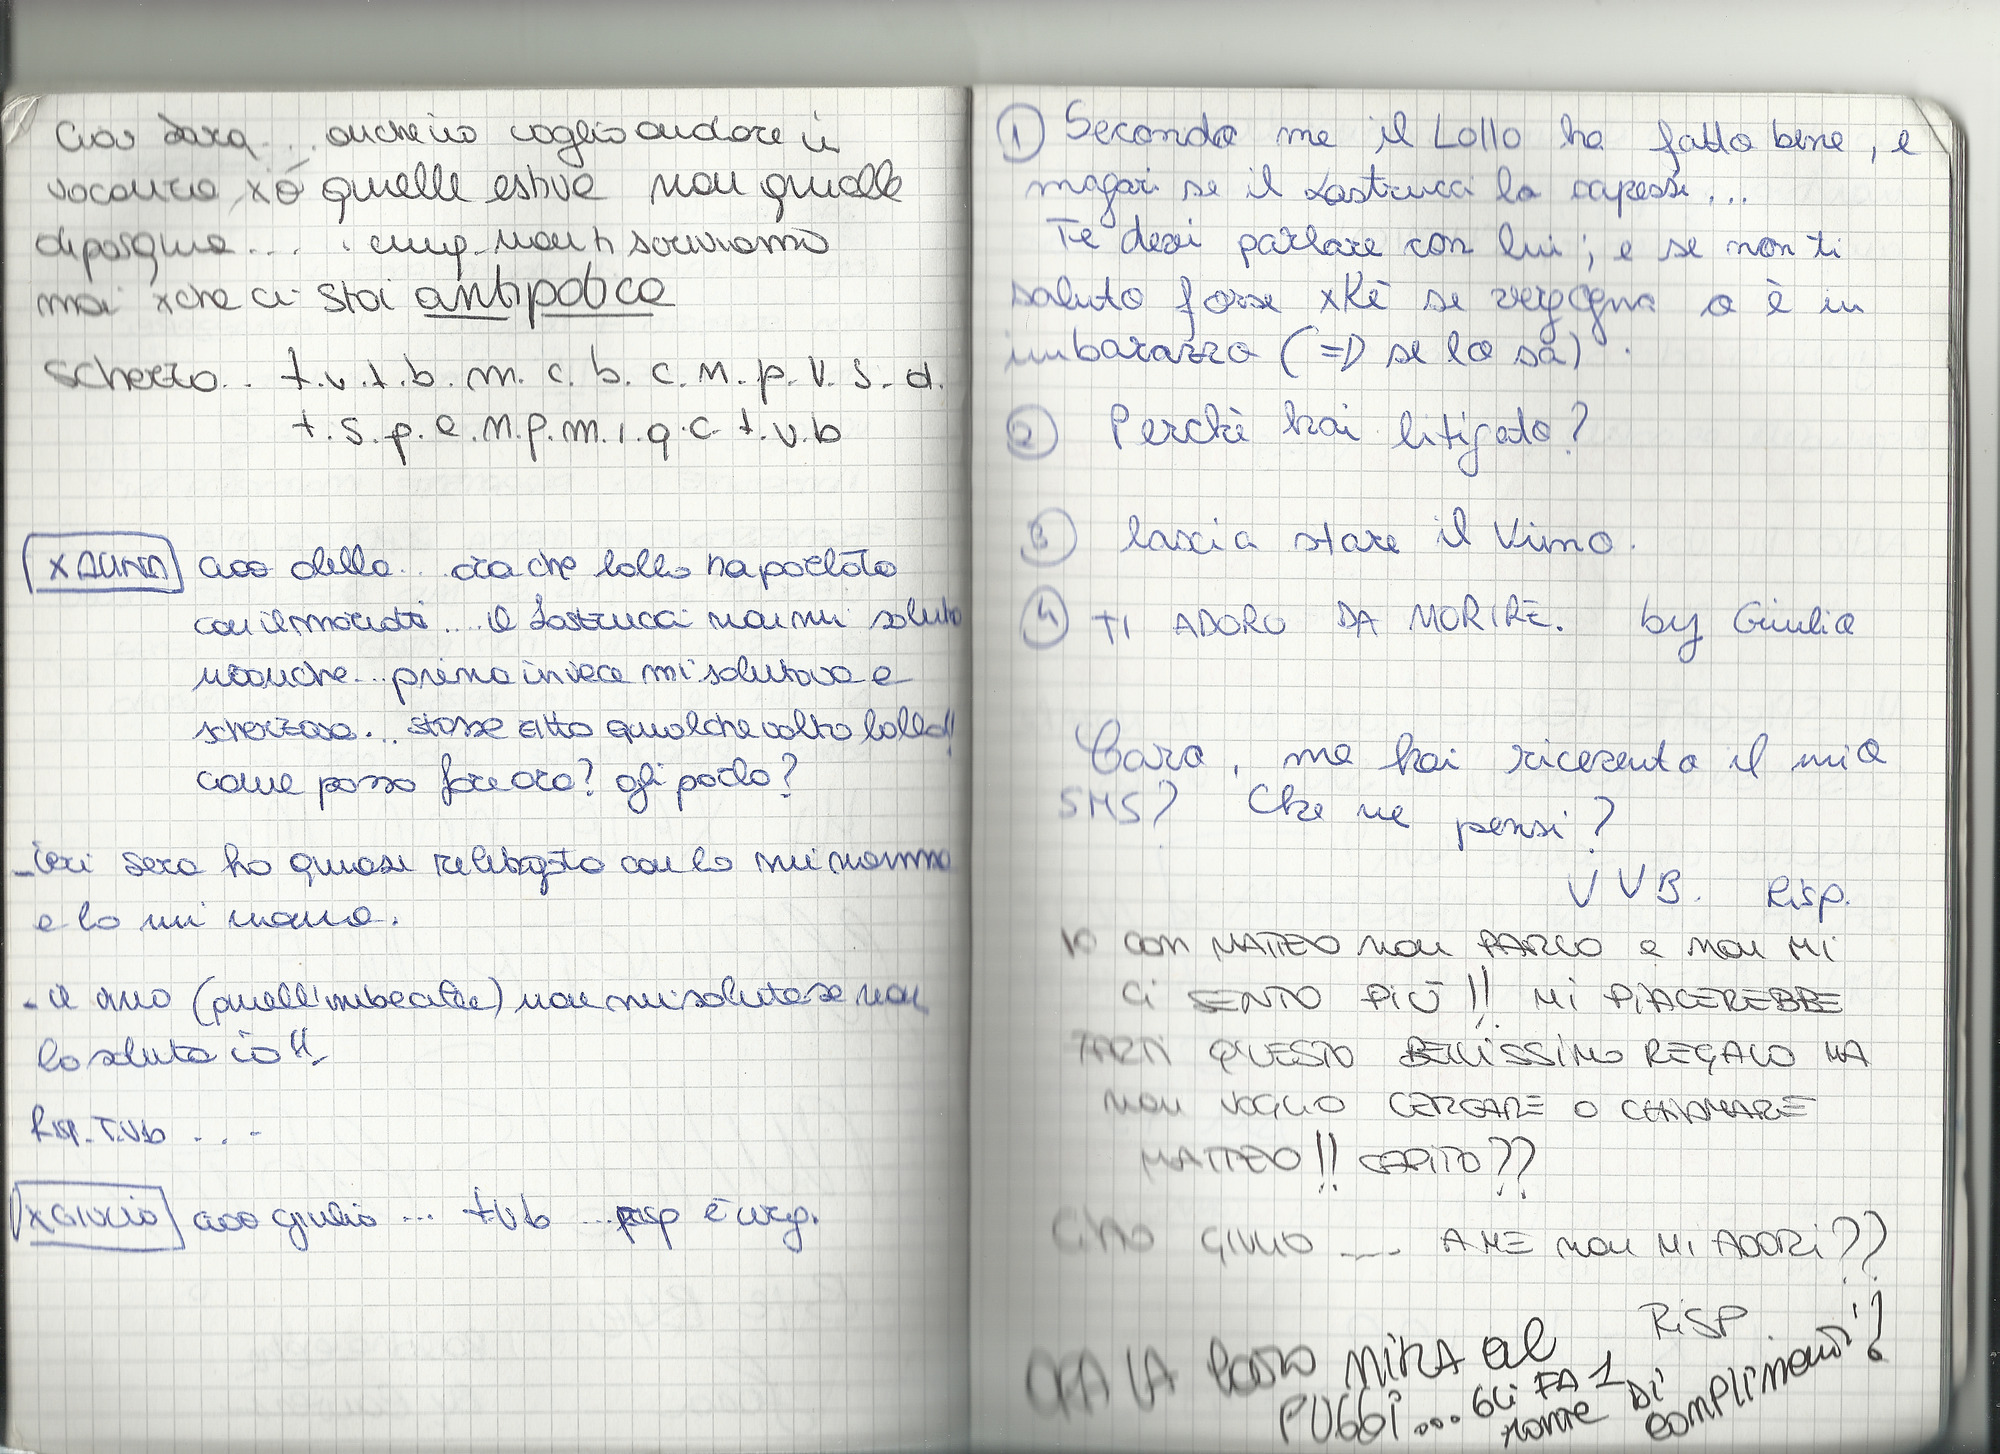 Ciao Sara... anche io voglio andare in
vacanza, xò quelle estive non quelle
di pasqua.... cmq non ti scriviamo
mai xche ci stai antipatica
scherzo.. t.v.t.b.m.c.b.c.n.p.v.s.d.
t.s.p.e.n.p.m.i.q.c.t.v.b
ciao della... ora che lollo ha parlato
con il ... il Lastrucci non mi saluta
neanche... prima invece mi salutava e
scherzava... stasse zitto qualche volta lollo!!
come posso fare ora? gli parlo?
- ieri sera ho quasi rilitigato con la mi mamma
e la mi nonna.
- il (quell'imbecille) non mi saluta se non
lo saluto io!!
Risp. T.V.b ...
x GIULIA ciao giulia ... t.v.b ... risp è urg.
① Secondo me il Lollo ha fatto bene, e
magari se il Lastrucci lo sapesse...
Te devi parlare con lui; e se non ti
saluta forse xkè se vergogna o è in
imbarazzo (=D se lo sa).
② Perchè hai litigato?
③ lascia stare il Vimo.
④ TI ADORO DA MORIRE. by Giulia
Cara, ma hai ricevuto il mio
SMS? Che ne pensi?
VVB. Risp.
IO CON MATTEO NON PARLO e NON MI
CI SENTO PIÙ!! MI PIACEREBBE
FARTI QUESTO BELLISSIMO REGALO MA
NON VOGLIO CERCARE O CHIAMARE
MATTEO!! CAPITO??
CIAO GIULIA .... A ME NON MI ADORI??
RISP.
ORA LA MIRA al
PUGGI... GLI FA 1
monte DI
complimenti!!